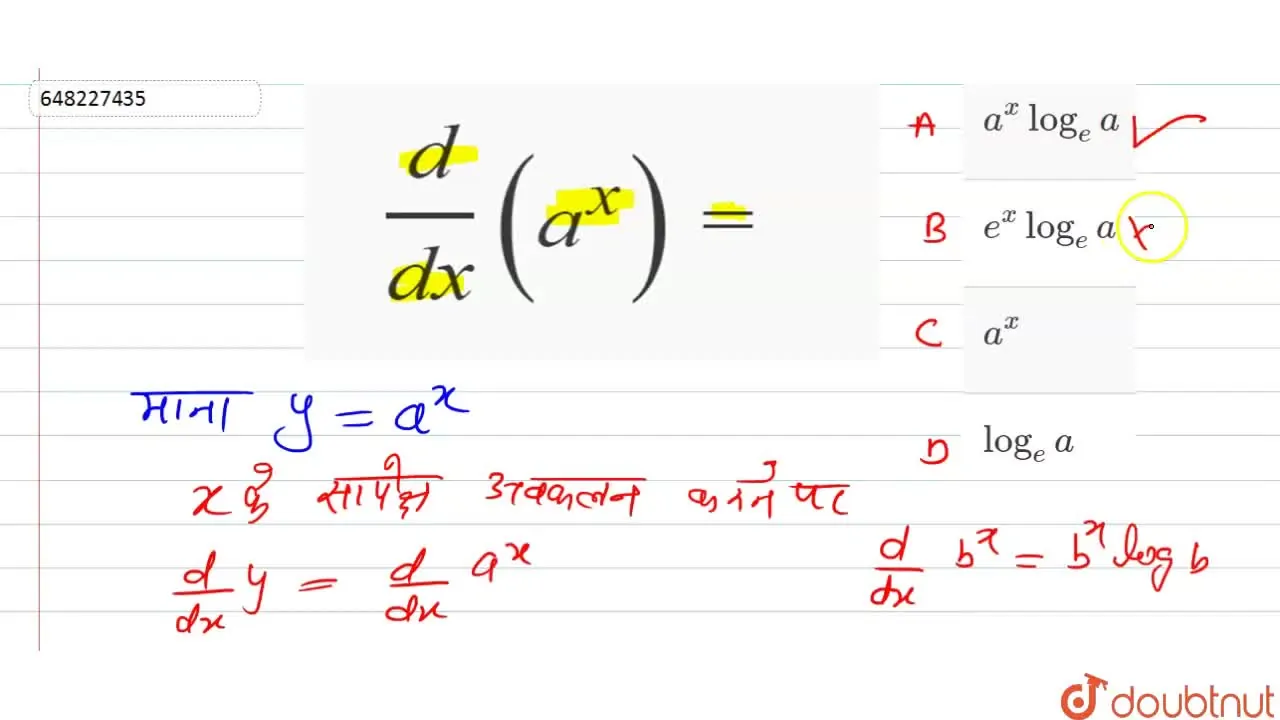 648227435
d/dx (a^x) =
A a^x log_e a ✓
B e^x log_e a x
C a^x
D log_e a
माना y = a^x
x के सापेक्ष अवकलन करने पर
d/dx y = d/dx a^x
d/dx b^x = b^x log b
doubtnut